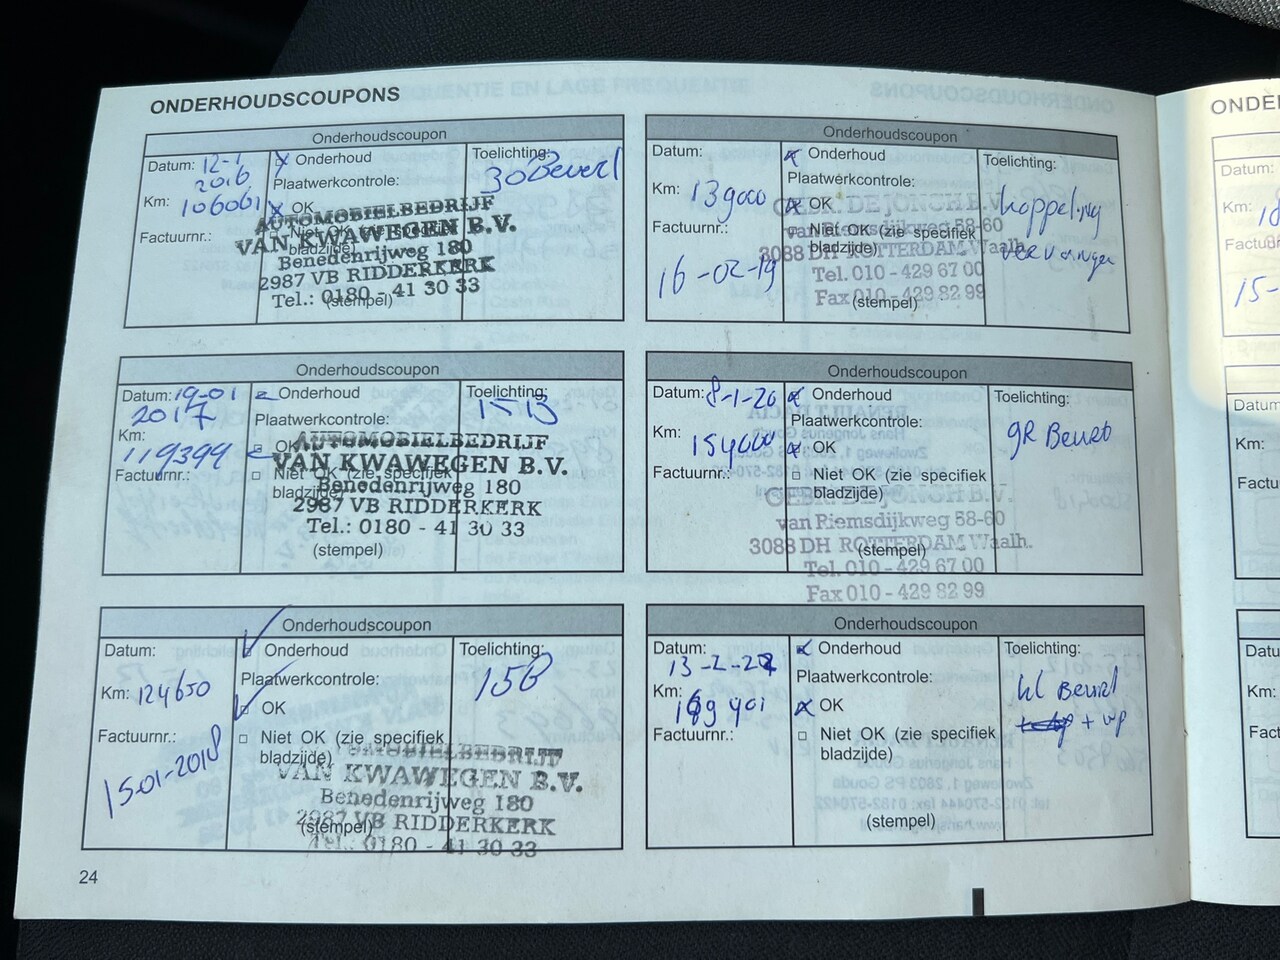 ONDERHOUDSCOUPONS
Onderhoudscoupon
Datum: 12-1
2016
Km: 106061
Factuurnr.:
Onderhoud
Plaatwerkcontrole:
OK
Niet OK (zie specifiek
bladzijde)
(stempel)
Toelichting:
30Beurt
AUTOMOBIELBEDRIJF
VAN KWAWEGEN B.V.
Benedenrijweg 180
2987 VB RIDDERKERK
Tel.: 0180 - 41 30 33
Onderhoudscoupon
Datum: 19-01
2017
Km:
119399
Factuurnr.:
Onderhoud
Plaatwerkcontrole:
OK
Niet OK (zie specifiek
bladzijde)
Toelichting:
AUTOMOBIELBEDRIJF
VAN KWAWEGEN B.V.
Benedenrijweg 180
2987 VB RIDDERKERK
Tel.: 0180 - 41 30 33
(stempel)
Onderhoudscoupon
Datum:
Km: 124650
Factuurnr.:
15-01-2018
Onderhoud
Plaatwerkcontrole:
OK
Niet OK (zie specifiek
bladzijde)
Toelichting:
15B
AUTOMOBIELBEDRIJF
VAN KWAWEGEN B.V.
Benedenrijweg 180
2987 VB RIDDERKERK
(stempel)
Tel.: 0180 - 41 30 33
24
Onderhoudscoupon
Datum:
Km: 139000
Factuurnr.:
16-02-19
Onderhoud
Plaatwerkcontrole:
OK
Niet OK (zie specifiek
bladzijde)
Toelichting:
koppeling
vervangen
GEBR. DE JONGH B.V.
van Riemsdijkweg 58-60
3088 DH ROTTERDAM Waalh.
Tel. 010 - 429 67 00
Fax 010 - 429 82 99
(stempel)
Onderhoudscoupon
Datum: 8-1-20
Km: 154000
Factuurnr.:
Onderhoud
Plaatwerkcontrole:
OK
Niet OK (zie specifiek
bladzijde)
Toelichting:
gR Beurt
GEBR. DE JONGH B.V.
van Riemsdijkweg 58-60
3088 DH ROTTERDAM Waalh.
(stempel)
Tel. 010 - 429 67 00
Fax 010 - 429 82 99
Onderhoudscoupon
Datum:
Km:
Factuurnr.:
Onderhoud
Plaatwerkcontrole:
OK
Niet OK (zie specifiek
bladzijde)
(stempel)
Toelichting:
kl Beurt
ONDE
Datum:
Km:
Factuu
15-
Datum
Km:
Factu
Datu
Km:
Fact